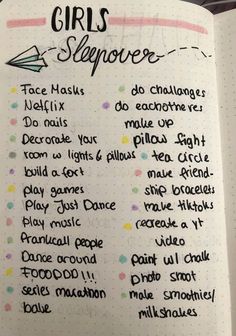 GIRLS
Sleepover
Face Masks
Netflix
Do nails
Decrorate your
room w lights & pillows
build a fort
play games
Play Just Dance
Play music
Prankcall people
Dance around
FOODDD!!!
series marathon
bake
do challanges
do eachotheres
make up
pillow fight
tea circle
make friend-
ship bracelets
make tiktoks
recreate a yt
video
paint w/ chalk
photo shoot
make smoothies/
milkshakes